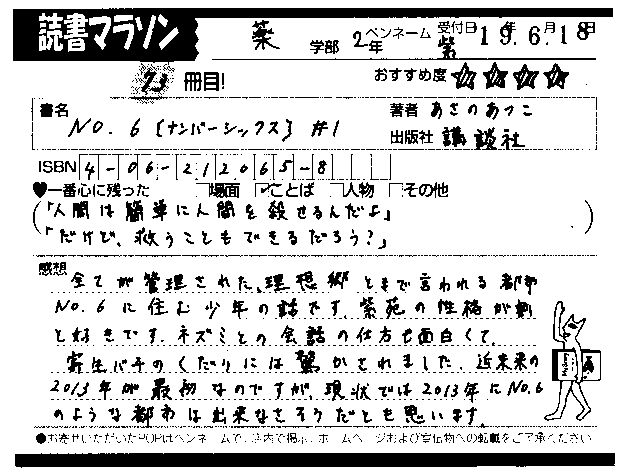 読書マラソン 薬 学部 2年 ペンネーム 紫 受付日 19年6月18日
73冊目! おすすめ度 ☆☆☆☆
書名 NO.6〔ナンバーシックス〕#1
著者 あさのあつこ
出版社 講談社
ISBN 4-06-212065-8
♥一番心に残った □場面 ☑ことば □人物 □その他
「人間は簡単に人間を殺せるんだよ」
「だけど、救うこともできるだろう?」
感想
全てが管理された、理想郷ともで言われる都市
NO.6に住む少年の話です。紫苑の性格が割
と好きです。ネズミとの会話の仕方も面白くて。
寄生バチのくだりには驚かされました。近未来の
2013年が最初なのですが、現状では2013年にNO.6
のような都市は出来なさそうだとも思います。
●お寄せいただいたPOPはペンネームで、店内で掲示、ホームページおよび宣伝物への転載をご了承ください